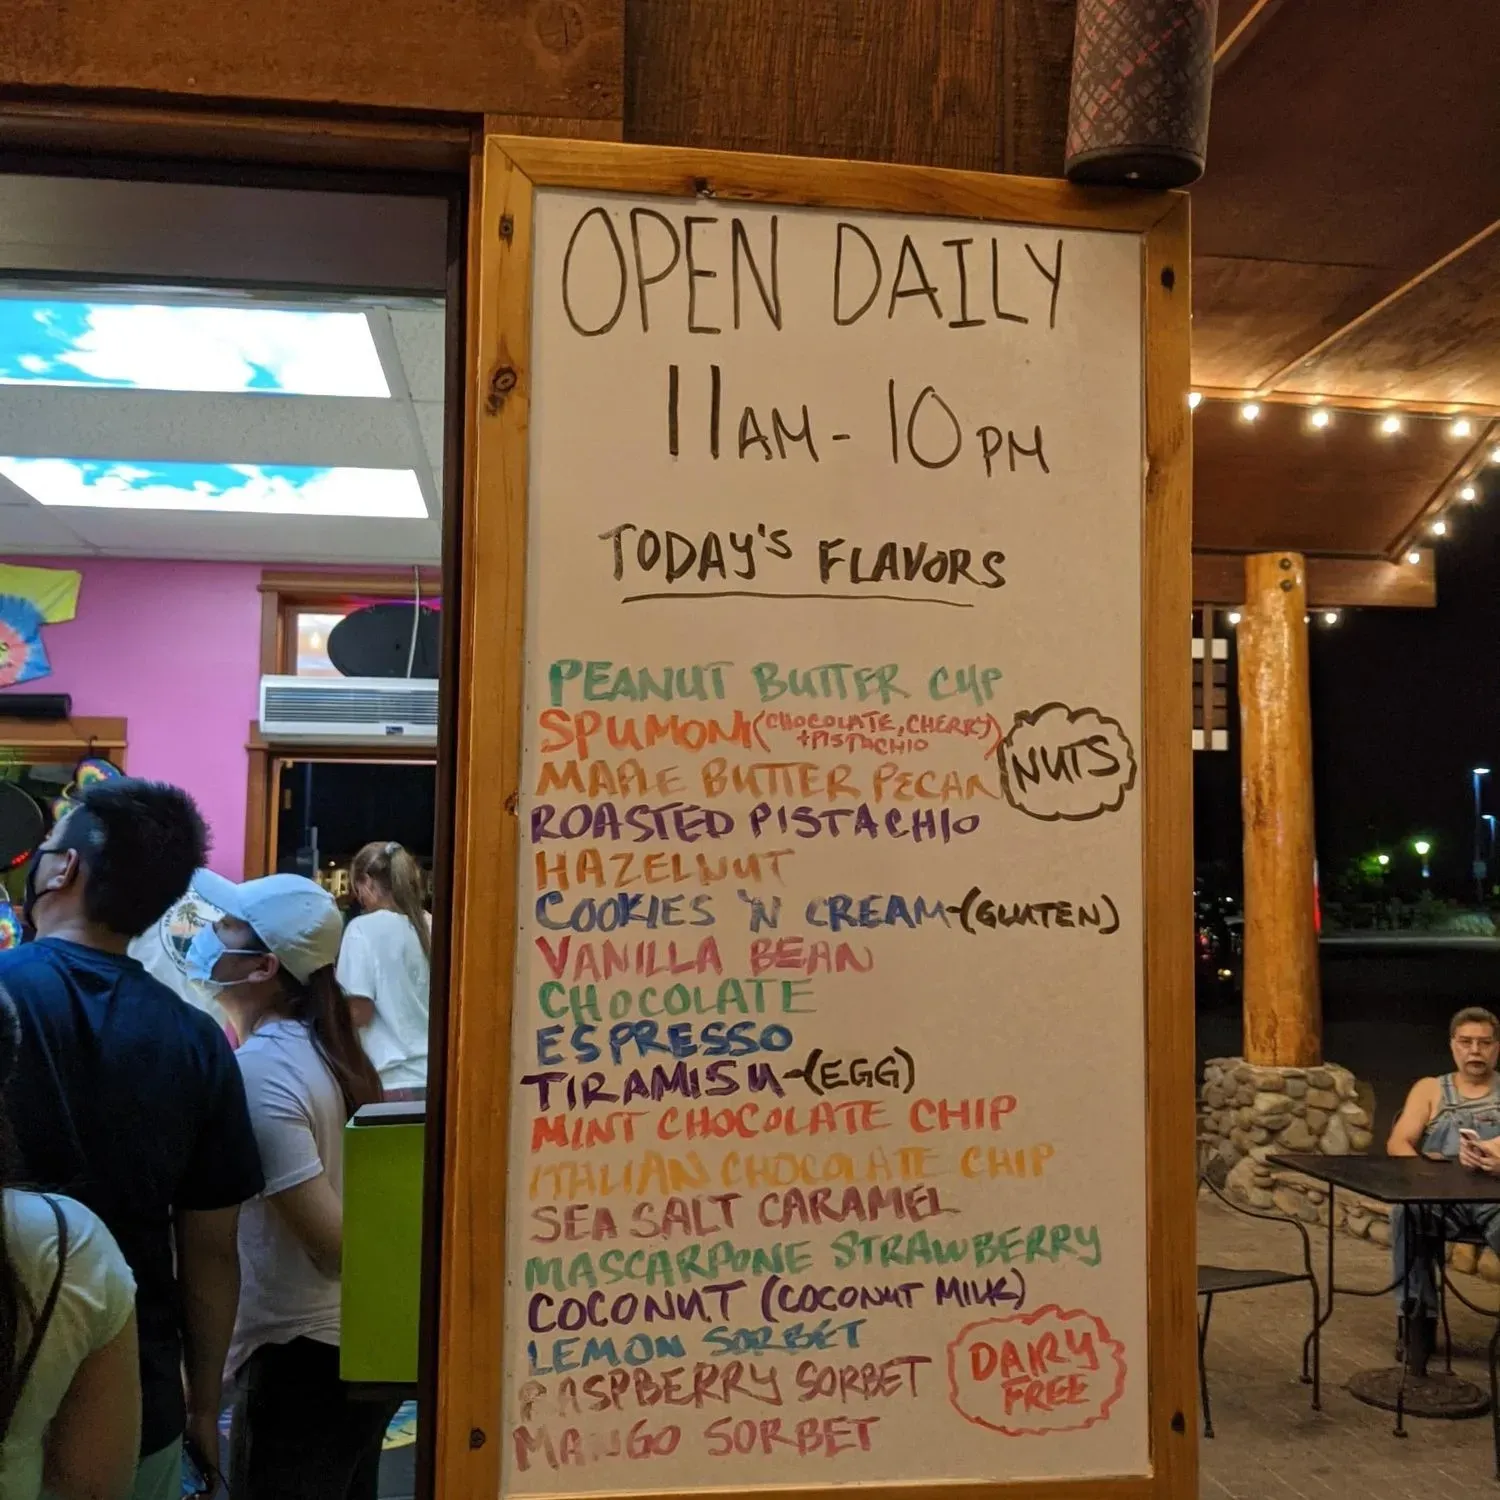 OPEN DAILY
11AM - 10PM
TODAY'S FLAVORS
PEANUT BUTTER CUP
SPUMONI (CHOCOLATE, CHERRY)
+PISTACHIO
MAPLE BUTTER PECAN
NUTS
ROASTED PISTACHIO
HAZELNUT
COOKIES 'N CREAM-(GLUTEN)
VANILLA BEAN
CHOCOLATE
ESPRESSO
TIRAMISU-(EGG)
MINT CHOCOLATE CHIP
ITALIAN CHOCOLATE CHIP
SEA SALT CARAMEL
MASCARPONE STRAWBERRY
COCONUT (COCONUT MILK)
LEMON SORBET
RASPBERRY SORBET
DAIRY
FREE
MANGO SORBET